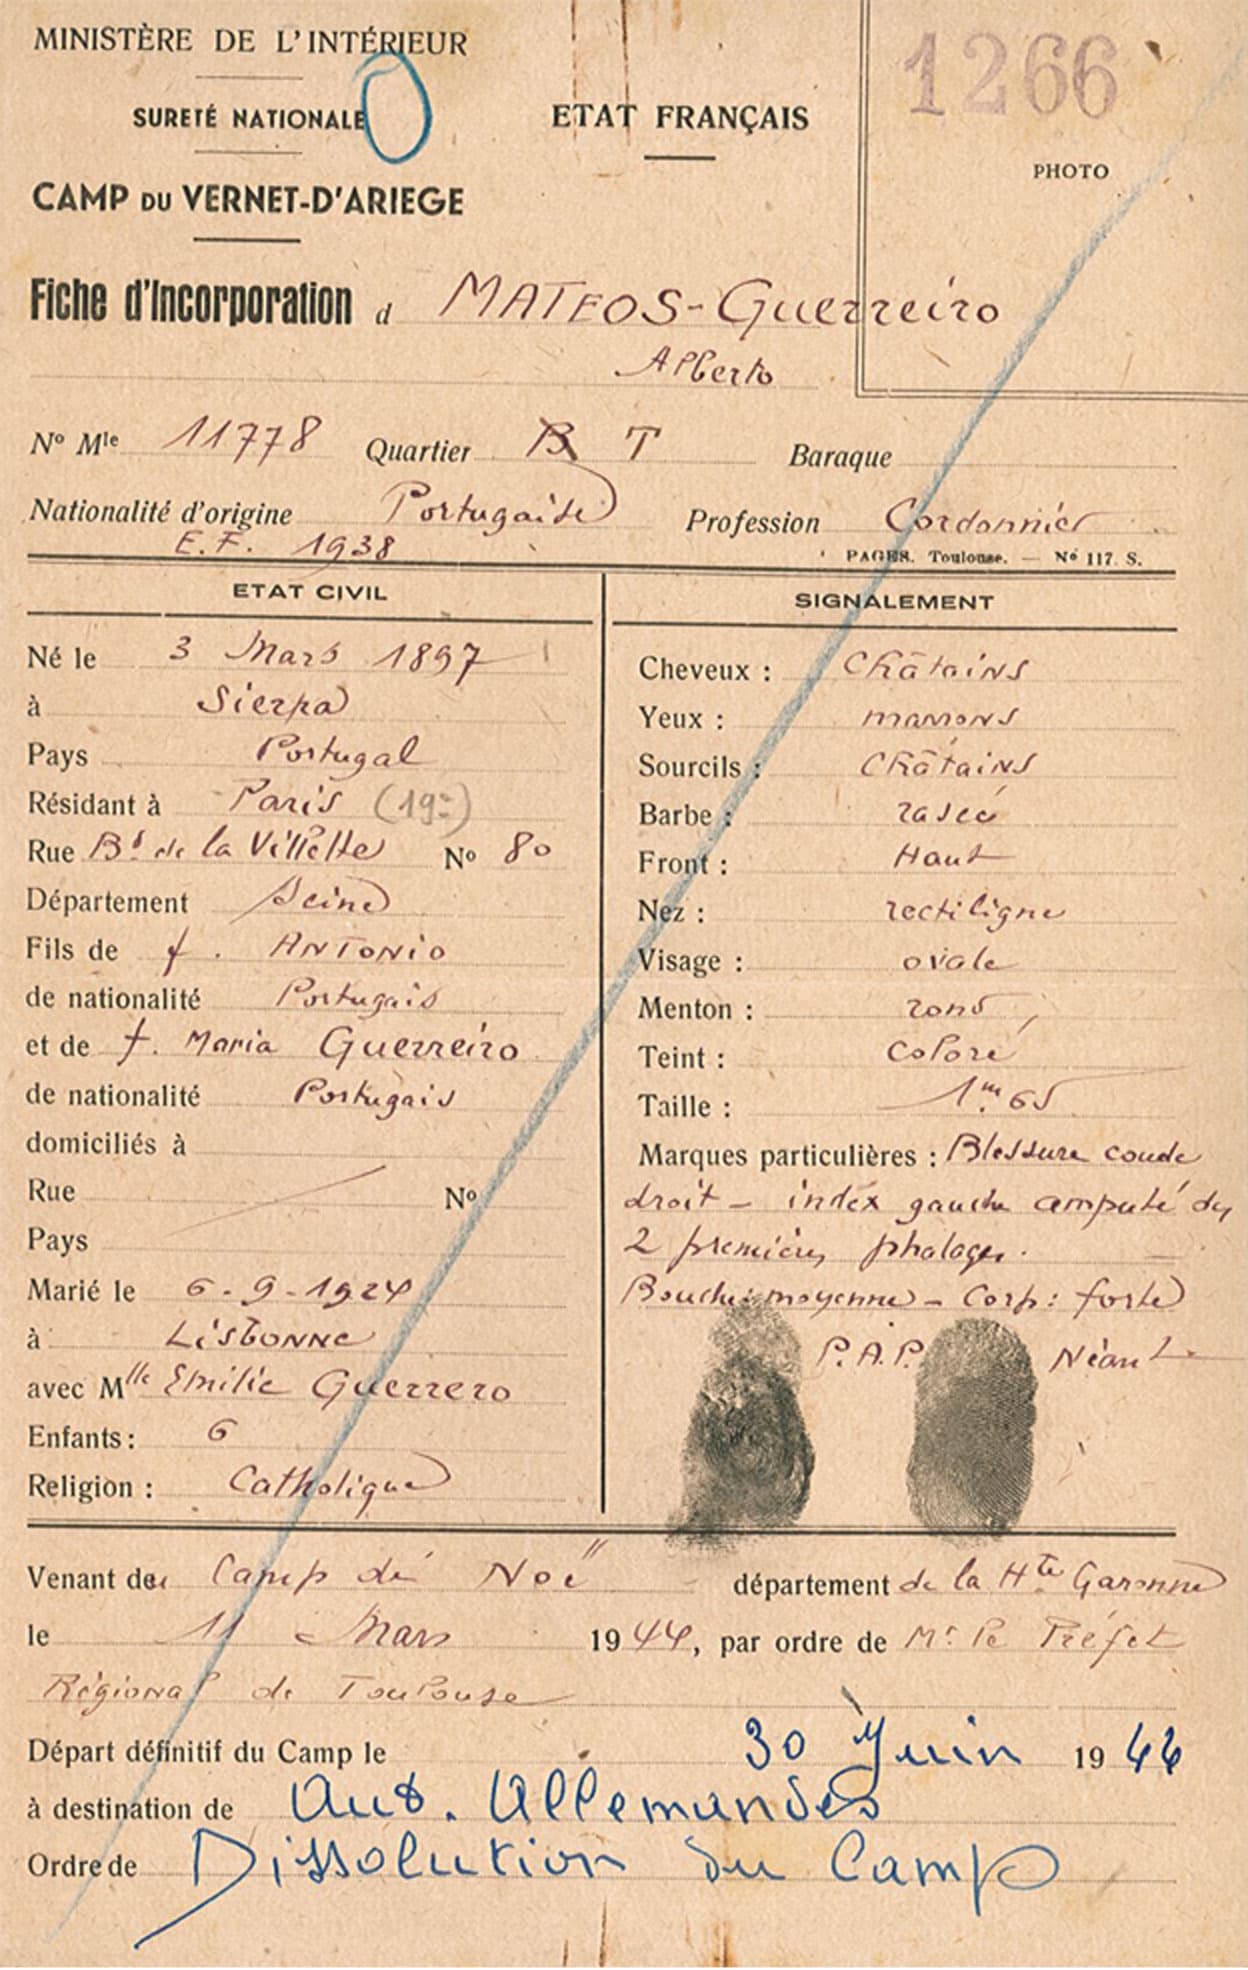 MINISTÈRE DE L'INTÉRIEUR
SURETÉ NATIONALE
CAMP DU VERNET-D'ARIEGE
ETAT FRANÇAIS
1266
PHOTO
Fiche d'Incorporation d MATEOS-Guerreiro
Alberto
No Mle 11778 Quartier B T Baraque
Nationalité d'origine Portugaise Profession Cordonnier
E.F. 1938
PAGES. Toulouse. — No 117. S.
ETAT CIVIL
Né le 3 Mars 1897
à Sierpa
Pays Portugal
Résidant à Paris (19e)
Rue Bd de la Villette No 80
Département Seine
Fils de f. ANTONIO
de nationalité Portugais
et de f. Maria Guerreiro
de nationalité Portugais
domiciliés à
Rue No
Pays
Marié le 6-9-1924
à LISBONNE
avec Mlle Emilie Guerrero
Enfants: 6
Religion : Catholique
SIGNALEMENT
Cheveux : Châtains
Yeux : marrons
Sourcils : Châtains
Barbe : rasée
Front : Haut
Nez : rectiligne
Visage : ovale
Menton : rond
Teint : Coloré
Taille : 1m65
Marques particulières : Blessure coude
droit - index gauche amputé des
2 premières phalages.
Bouche: moyenne - Corp: forte
P.A.P. Néant
Venant du Camp de Noë département de la Hte Garonne
le 11 Mars 1944, par ordre de Mr le Préfet
Régional de Toulouse
Départ définitif du Camp le 30 Juin 1944
à destination de Aut. Allemandes
Ordre de Dissolution du Camp